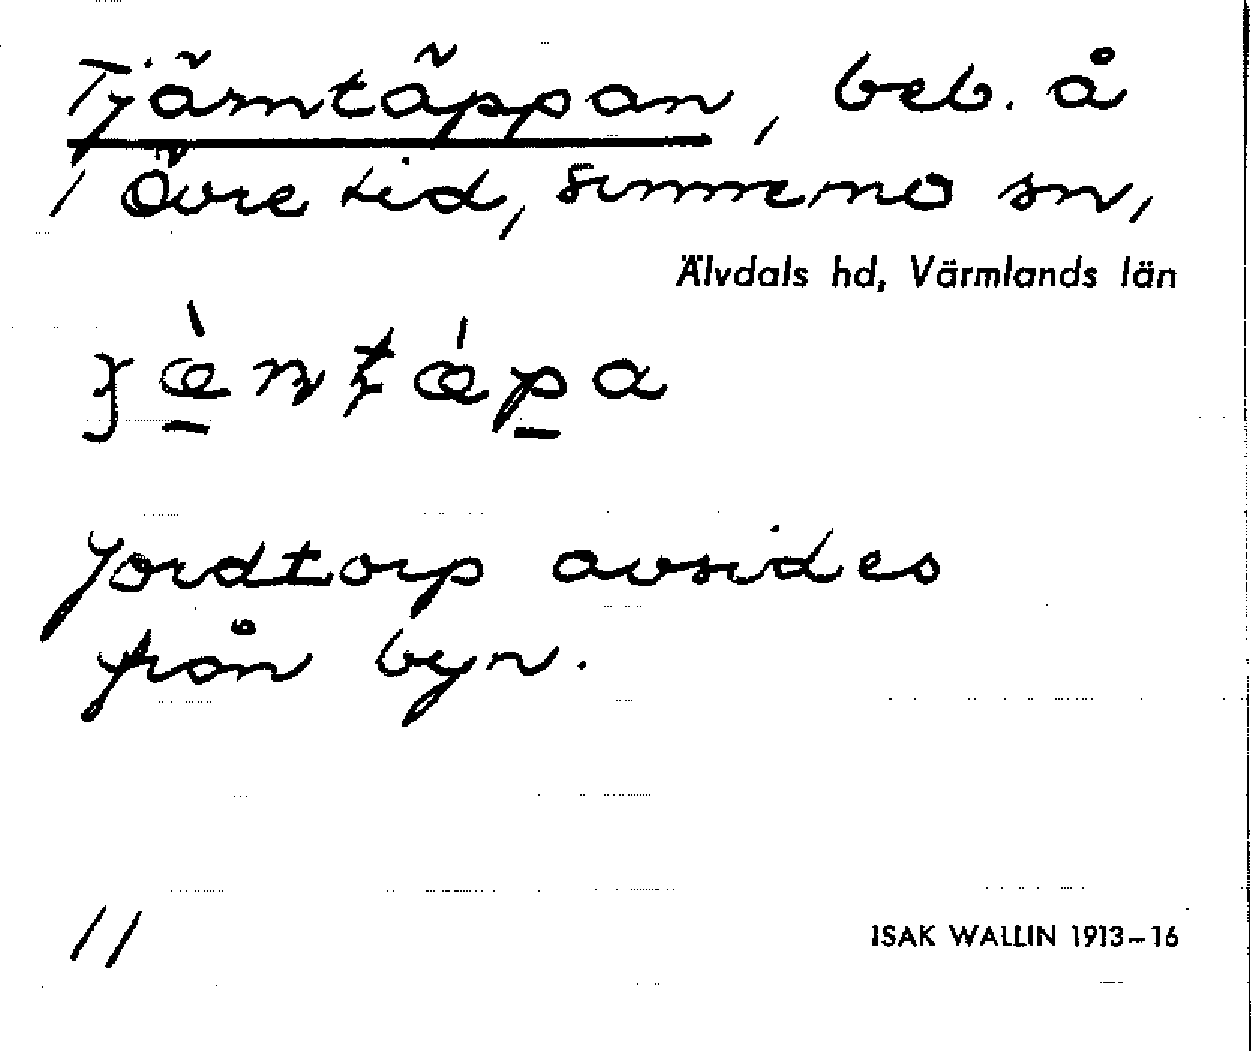 Tjärntäppan, beb. å
Övre Lid, Sunnemo sn,
Älvdals hd, Värmlands län
Jordtorp avsides
från byn.
11
ISAK WALLIN 1913–16